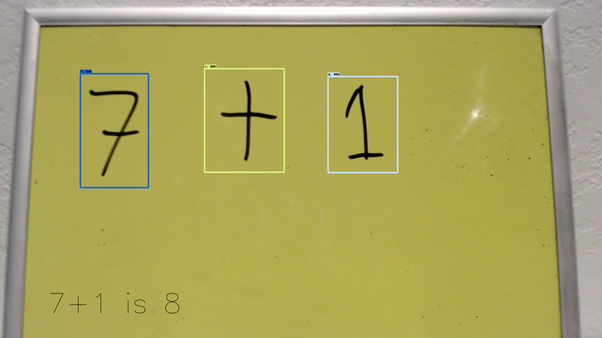 7 + 1
7+1 is 8